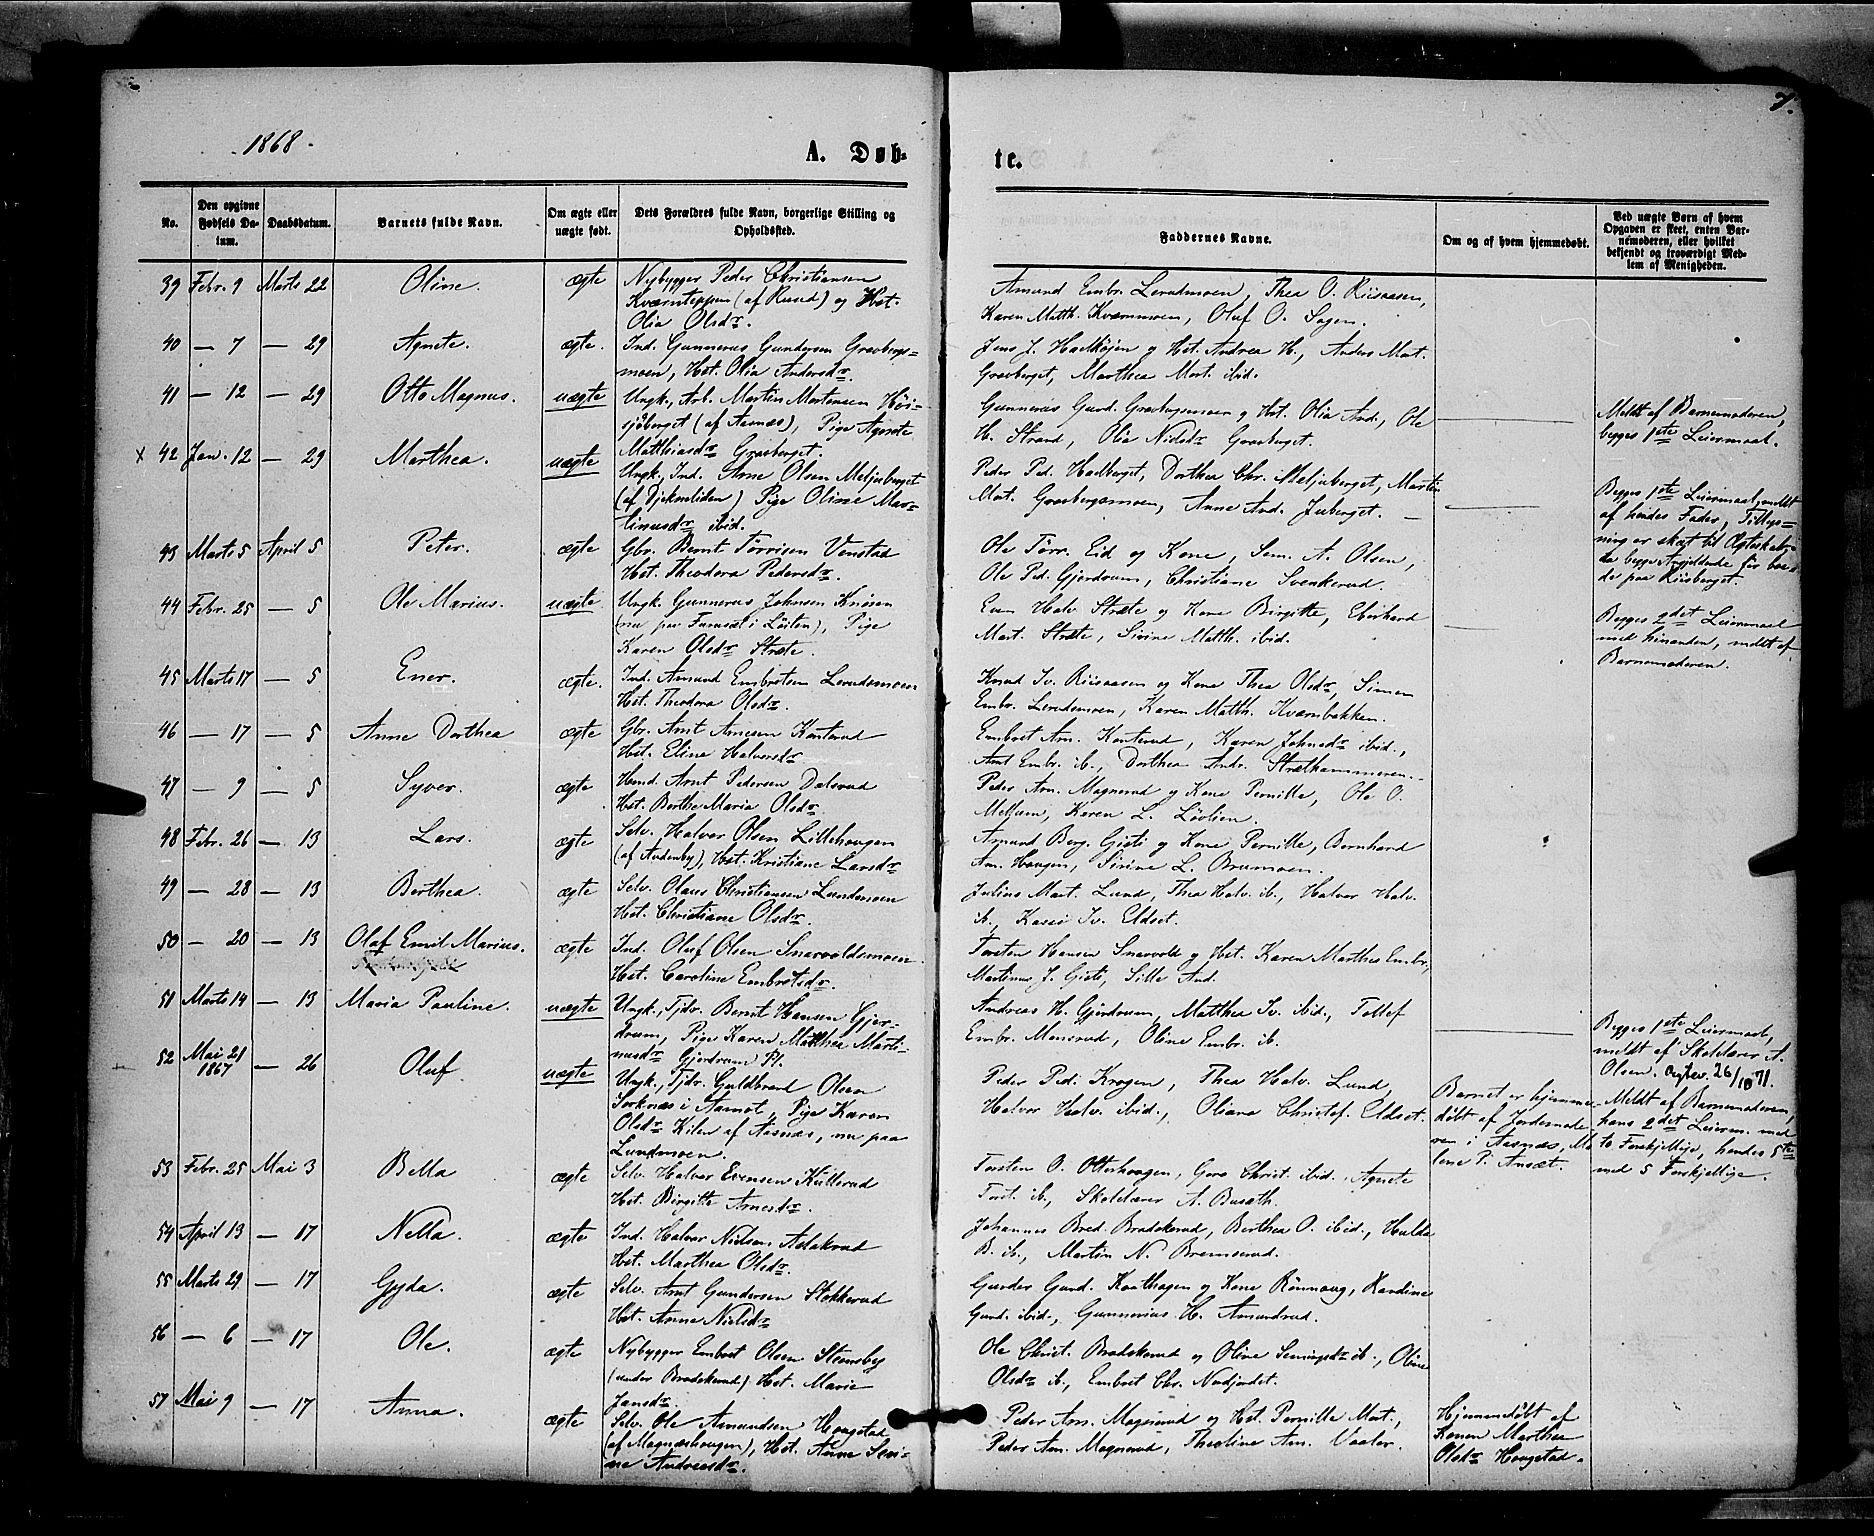 1868.
7.
A. Døb-
te.
No.
Den opgivne Fødsels Da-tum.
Daabsdatum.
Barnets fulde Navn.
Om ægte eller uægte født.
Dets Forældres fulde Navn, borgerlige Stilling og Opholdssted.
Faddernes Navne.
Om og af hvem hjemmedøbt.
Ved uægte Børn af hvem Opgaven er skeet, enten Bar-nemoderen, eller hvilket bekjendt og troværdigt Med-lem af Menigheden.
39 Febr. 9 Marts 22 Oline. ægte Nybygger Peder Christiansen
Kværnteppen (af Ruud) og Hst.
Olia Olsdr.
Amund Embr. Lerudmoen, Thea O. Riisaasen,
Karen Matth. Kværnmoen, Oluf O. Sagen.
40 — 7 — 29 Agnete. ægte. Ind. Gunnerus Gundersen Gravbergs=
moen, Hst. Olia Andersdr.
Jens J. Hadkøjen og Hst. Andrea H., Anders Mort.
Gravberget, Marthea Mort. ibid.
41 — 12 — 29 Otto Magnus. uægte Ungk., Arb. Martin Mortensen Høi-
sjøberget (af Aasnæs), Pige Agnete
Matthiasdr Gravberget.
Gunnerus Gund. Gravbergsmoen og Hst. Olia And., Ole
H. Strand, Olia Nielsdr Gravberget.
Meldt af Barnemoderen,
begges 1ste Leiermaal.
x 42 Jan. 12 — 29 Marthea. uægte Ungk., Ind. Arne Olsen Meljuberget
(af Djekneliden) Pige Oline Mar-
tinusdr ibid.
Peder Ped. Hadberget, Dorthea Chr. Meljuberget, Martin
Mort. Gravbergsmoen, Anne And. Juberget. —
Begges 1ste Leiermaal, meldt
af hendes Fader, Tillys=
ning er skeet til Ægteskab,
da begge Angjeldende for bo-
de paa Risberget.
43 Marts 5 April 5 Peter. ægte Gbr. Bernt Tørrisen Venstad
Hst. Theodora Pedersdr.
Ole Tørr. Eid og Kone, Sem. A. Olsen,
Ole Ped. Gjerdrum, Christiane Svenkerud.
44 Febr. 25 — 5 Ole Marius. uægte Ungk. Gunnerus Johnsen Knisen
(nu paa Furuset i Løiten), Pige
Karen Olsdr Stræte.
Even Halv Stræte og Kone Birgitte, Eberhard
Mart. Stræte, Sirine Matth. ibid.
Begges 2det Leiermaal
med hinanden, meldt af
Barnemoderen.
45 Marts 17 — 5 Ener. ægte. Ind. Amund Embretsen Lerudmoen
Hst. Theodora Olsdr.
Knud Iv. Riisaasen og Kone Thea Olsdr, Simen
Embr. Lerudmoen, Karen Matth. Kværnbakken.
46 — 17 — 5 Anne Dorthea ægte Gbr. Arnt Arnesen Konterud
Hst. Eline Halvorsdr
Embret Arn. Konterud, Karen Johnsdr ibid.,
Arnt Embr. ib., Dorthea Andr. Stræthammeren.
47 — 9 — 5 Syver. ægte Husmd. Arnt Pedersen Dalsrud
Hst. Berthe Maria Olsdr.
Peder Arn. Magnerud og Kone Pernille, Ole O.
Mellum, Karen L. Løvlien.
48 Febr. 26 — 13 Lars. ægte Selv. Halvor Olsen Lillehaugen
(af Audenby), Hst. Kristiane Larsdr
Amund Berg. Gjeti og Kone Pernille, Bernhard
Am. Haugen, Sirine L. Brumoen.
49 — 28 — 13 Berthea. ægte Selv. Olaus Christiansen Lundemoen
Hst. Christiane Olsdr.
Julius Mart. Lund, Thea Halv. ib., Halvor Halv.
ib., Kassi Iv. Eldset.
50 — 20 — 13 Olaf Emil Marius. ægte Ind. Oluf Olsen Snarvoldsmoen
Hst. Caroline Embretsdr.
Torsten Hansen Snarvold og Hst. Karen Marthea Embr.,
Martinus J. Gjeti, Sille And.
51 Marts 14 — 13 Maria Pauline. uægte Ungk., Tjdr. Bernt Hansen Gjer-
drum, Pige Karen Matthea Marti-
nusdr Gjerdrum Pl.
Andreas H. Gjerdrum, Matthea Iv. ibid., Tollef
Embr. Monsrud, Oline Embr. ib.
Begges 1ste Leiermaal,
meldt af Skolelærer A.
Olsen. Ægtev. 26/10 71.
52 Mai 21 1867 — 26 Oluf uægte Ungk., Tjdr. Guldbrand Olsen
Sorknæs i Aamot, Pige Karen
Olsdr Kilen af Aasnæs, nu paa
Lundmoen.
Peder Ped. Krogen, Thea Halv. Lund,
Halvor Halv. ibid., Oliana Christof. Eldset.
Barnet er hjemme-
døbt af Jordemode-
ren i Aasnæs, Ma-
lene P. Ansæt.
Meldt af Barnemoderen,
hans 2det Leierm. med
to Forskjellige, hendes 5te
med 5 Forskjellige.
53 Febr. 25 Mai 3 Bella ægte Selv. Halvor Evensen Kullerud
Hst. Birgitte Arnesdr.
Torsten O. Otterhaugen, Goro Christ. ibid., Agnete
Torst. ib., Skolelærer A. Busæth.
54 April 13 — 17 Nella. ægte Ind. Halvor Nielsen Aslakrud
Hst. Marthea Olsdr.
Johannes Bred. Bradskerud, Berthea O. ibid., Hulda
B. ib., Martin N. Bremserud.
55 Marts 29 — 17 Gyda. ægte Selv. Arnt Gundersen Stokkerud
Hst. Anne Nielsdr
Gunder Gund. Kaathagen og Kone Rønnaug, Karoline
Gund. ibid., Gunnerius H. Amundrud.
56 — 6 — 17 Ole. ægte Nybygger Embret Olsen Steensby
(under Bradskerud) Hst. Marie
Jansdr
Ole Christ. Bradskerud og Oline Semingsdr ib., Oline
Olsdr ib., Embret Chr. Nordjordet.
57 Mai 9 — 17 Anna. ægte Selv. Ole Amundsen Haugstad
(af Magnæshaugen), Hst. Anne Seri-
ne Andreasdr.
Peder Am. Magnerud og Hst. Pernille Mort.,
Peder Am. Magnerud, Theoline Am. Vaaler.
Hjemmedøbt af
Konen Marthea
Olsdr Haugstad.